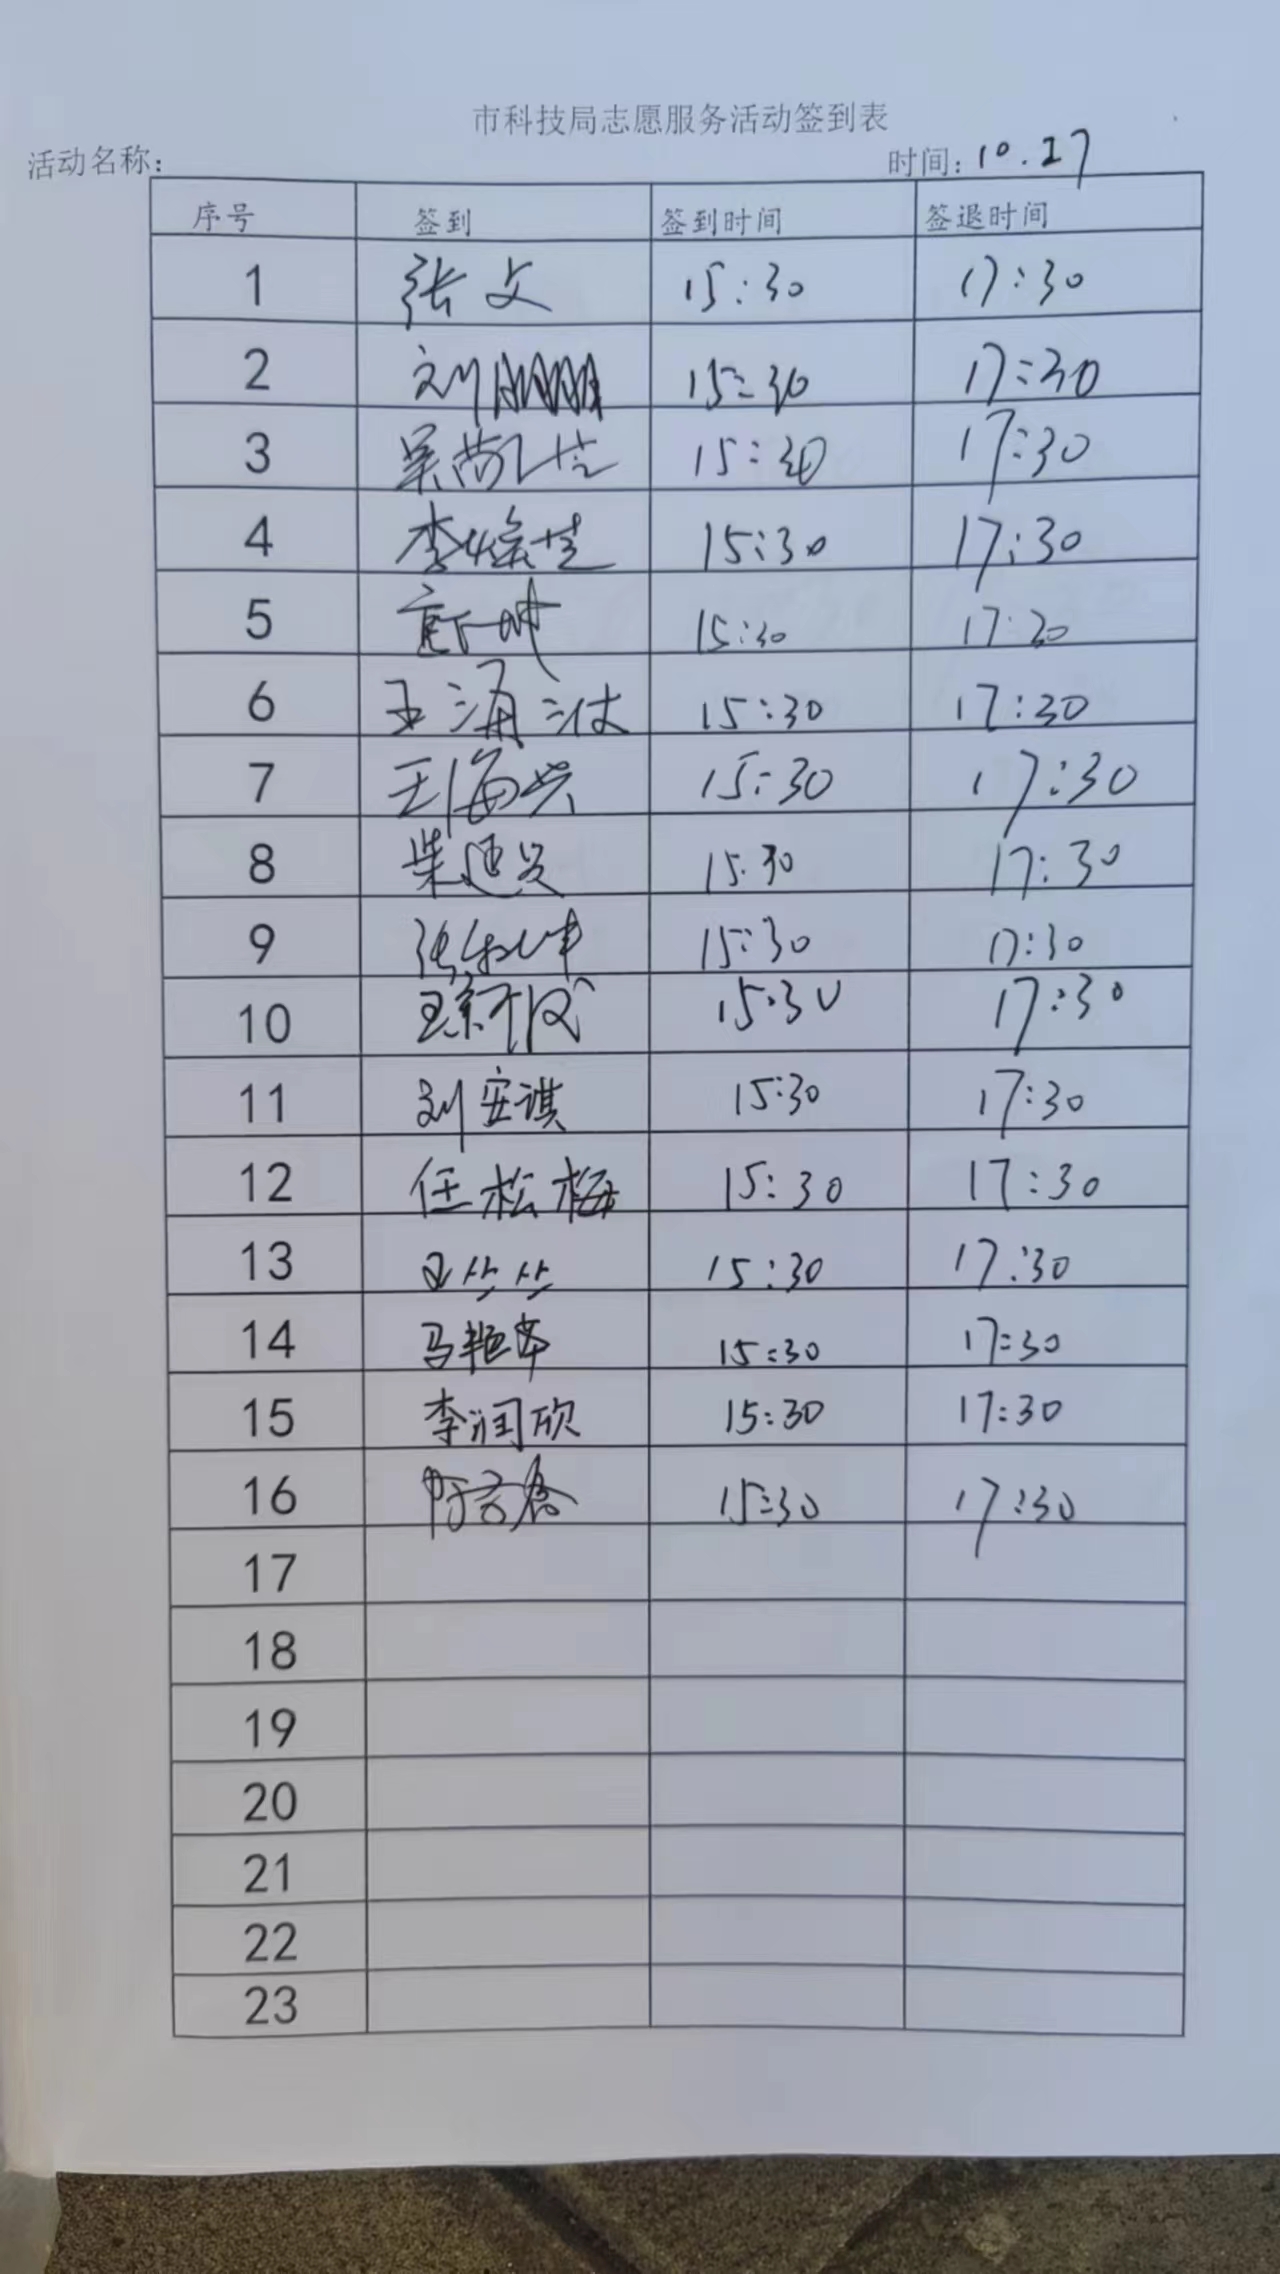 市科技局志愿服务活动签到表
活动名称: 时间: 10.27
序号 签到 签到时间 签退时间
1 张文 15:30 17:30
2 刘 15:30 17:30
3 吴 15:30 17:30
4 李 15:30 17:30
5 15:30 17:30
6 王海 15:30 17:30
7 王海兴 15:30 17:30
8 柴 15:30 17:30
9 张 15:30 17:30
10 15:30 17:30
11 刘安祺 15:30 17:30
12 任松梅 15:30 17:30
13 王丛丛 15:30 17:30
14 马艳华 15:30 17:30
15 李润欣 15:30 17:30
16 15:30 17:30
17
18
19
20
21
22
23